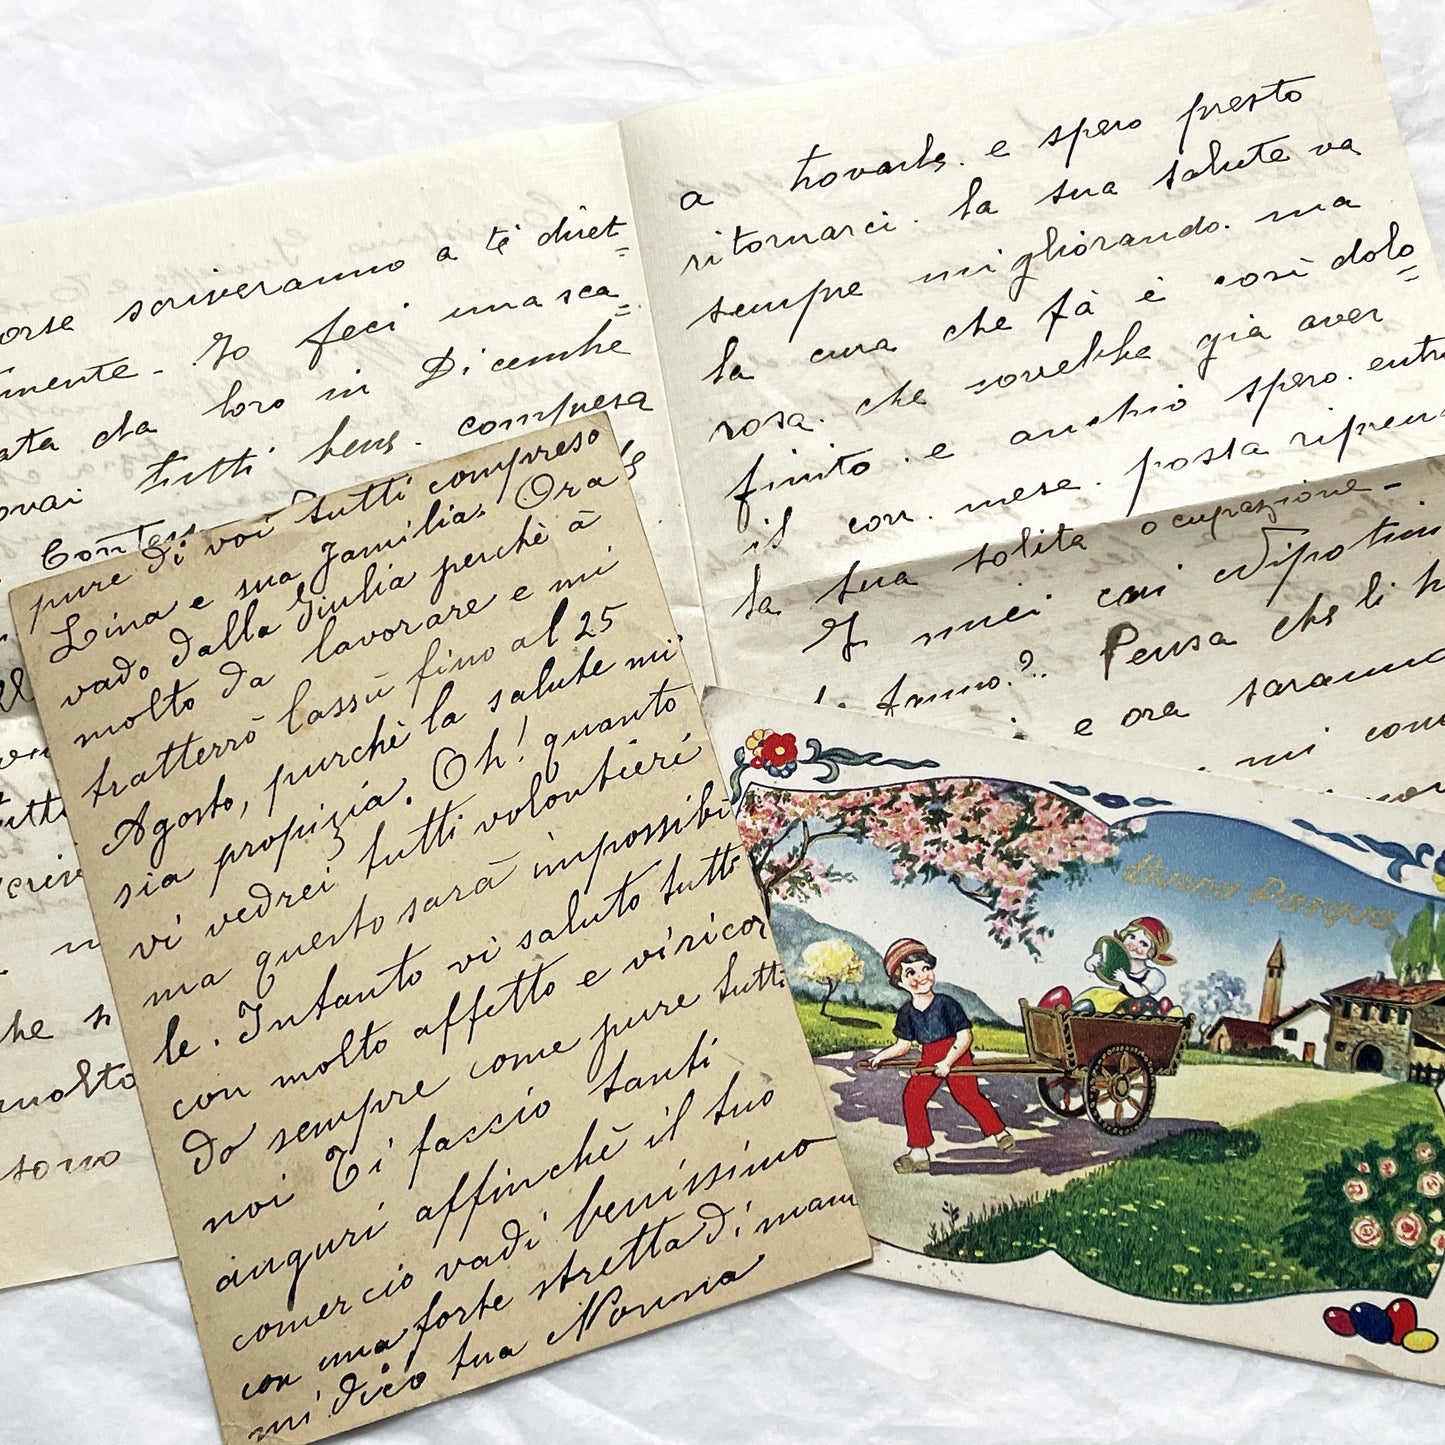 orse scriveranno a te diret=
timente - Io feci una sca=
ata da loro in Dicembre
ovai tutti bene. compresa
Contess
a trovarla. e spero presto
ritornarci. la sua salute va
sempre migliorando. ma
la cura che fà è così dolo=
rosa. che vorrebbe già aver
finito. e anchio spero. entro
il corr. mese. possa riprend
la sua solita ocupazione -
I miei cari Nipotini
Fanno?. Pensa che li h
e ora saranno
mi con
pure di voi tutti compreso
Lina e sua Familia. Ora
vado dalla Giulia perchè à
molto da lavorare e mi
tratterrò lassù fino al 25
Agosto, purchè la salute mi
sia propizia. Oh! quanto
vi vedrei tutti volontieri
ma questo sarà impossibi
le. Intanto vi saluto tutti
con molto affetto e vi ricor
do sempre come pure tutti
noi Ti faccio tanti
auguri affinchè il tuo
comercio vadi benissimo
con una forte stretta di mano
mi dico tua Nonna
he
molto
sono
Buona Pasqua